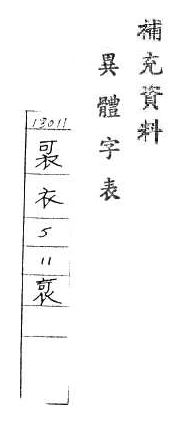 補充資料
異體字表
13011
衣
5
11